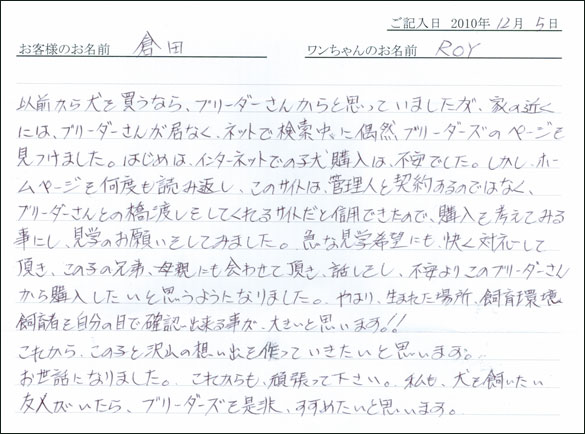 ご記入日 2010年 12月 5日
お客様のお名前 倉田 ワンちゃんのお名前 ROY
以前から犬を買うなら、ブリーダーさんからと思っていましたが、家の近く
には、ブリーダーさんが居なく、ネットで検索中に偶然、ブリーダーズのページを
見つけました。はじめは、インターネットでの子犬購入は、不安でした。しかし、ホー
ムページを何度も読み返し、このサイトは、管理人と契約するのではなく、
ブリーダーさんとの橋渡しをしてくれるサイトだと信用できたので、購入を考えてみる
事にし、見学のお願いをしてみました。急な見学希望にも、快く対応して
頂き、この子の兄弟、母親にも会わせて頂き、話しをし、不安よりこのブリーダーさん
から購入したいと思うようになりました。やはり、生まれた場所、飼育環境
飼育者を自分の目で確認出来る事が、大きいと思います!!
これから、この子と沢山の想い出を作っていきたいと思います。
お世話になりました。これからも、頑張って下さい。私も、犬を飼いたい
友人がいたら、ブリーダーズを是非、すすめたいと思います。